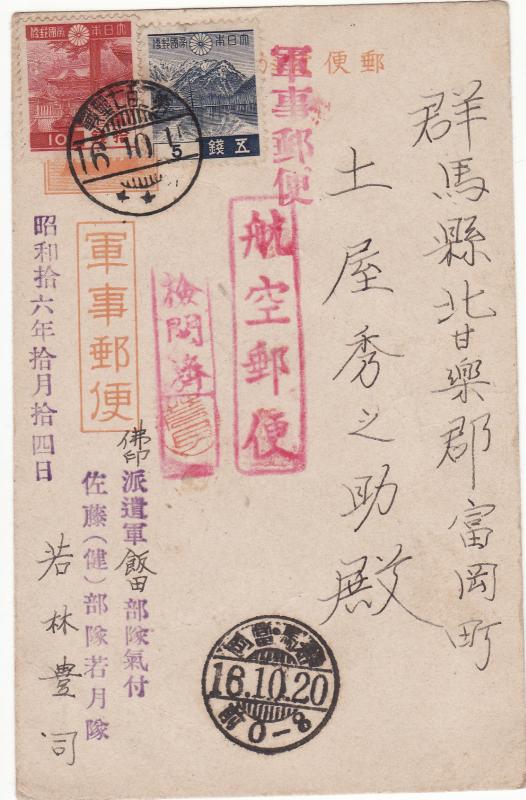 郵便
軍事郵便
群馬縣北甘樂郡富岡町
土屋秀之助殿
航空郵便
檢閲濟
軍事郵便
佛印派遣軍飯田部隊氣付
佐藤(健)部隊若月隊
若林豊司
昭和拾六年拾月拾四日
大日本帝國郵便
10
大日本帝國郵便
五錢
16.10.15
群馬・富岡
16.10.20
前0-8